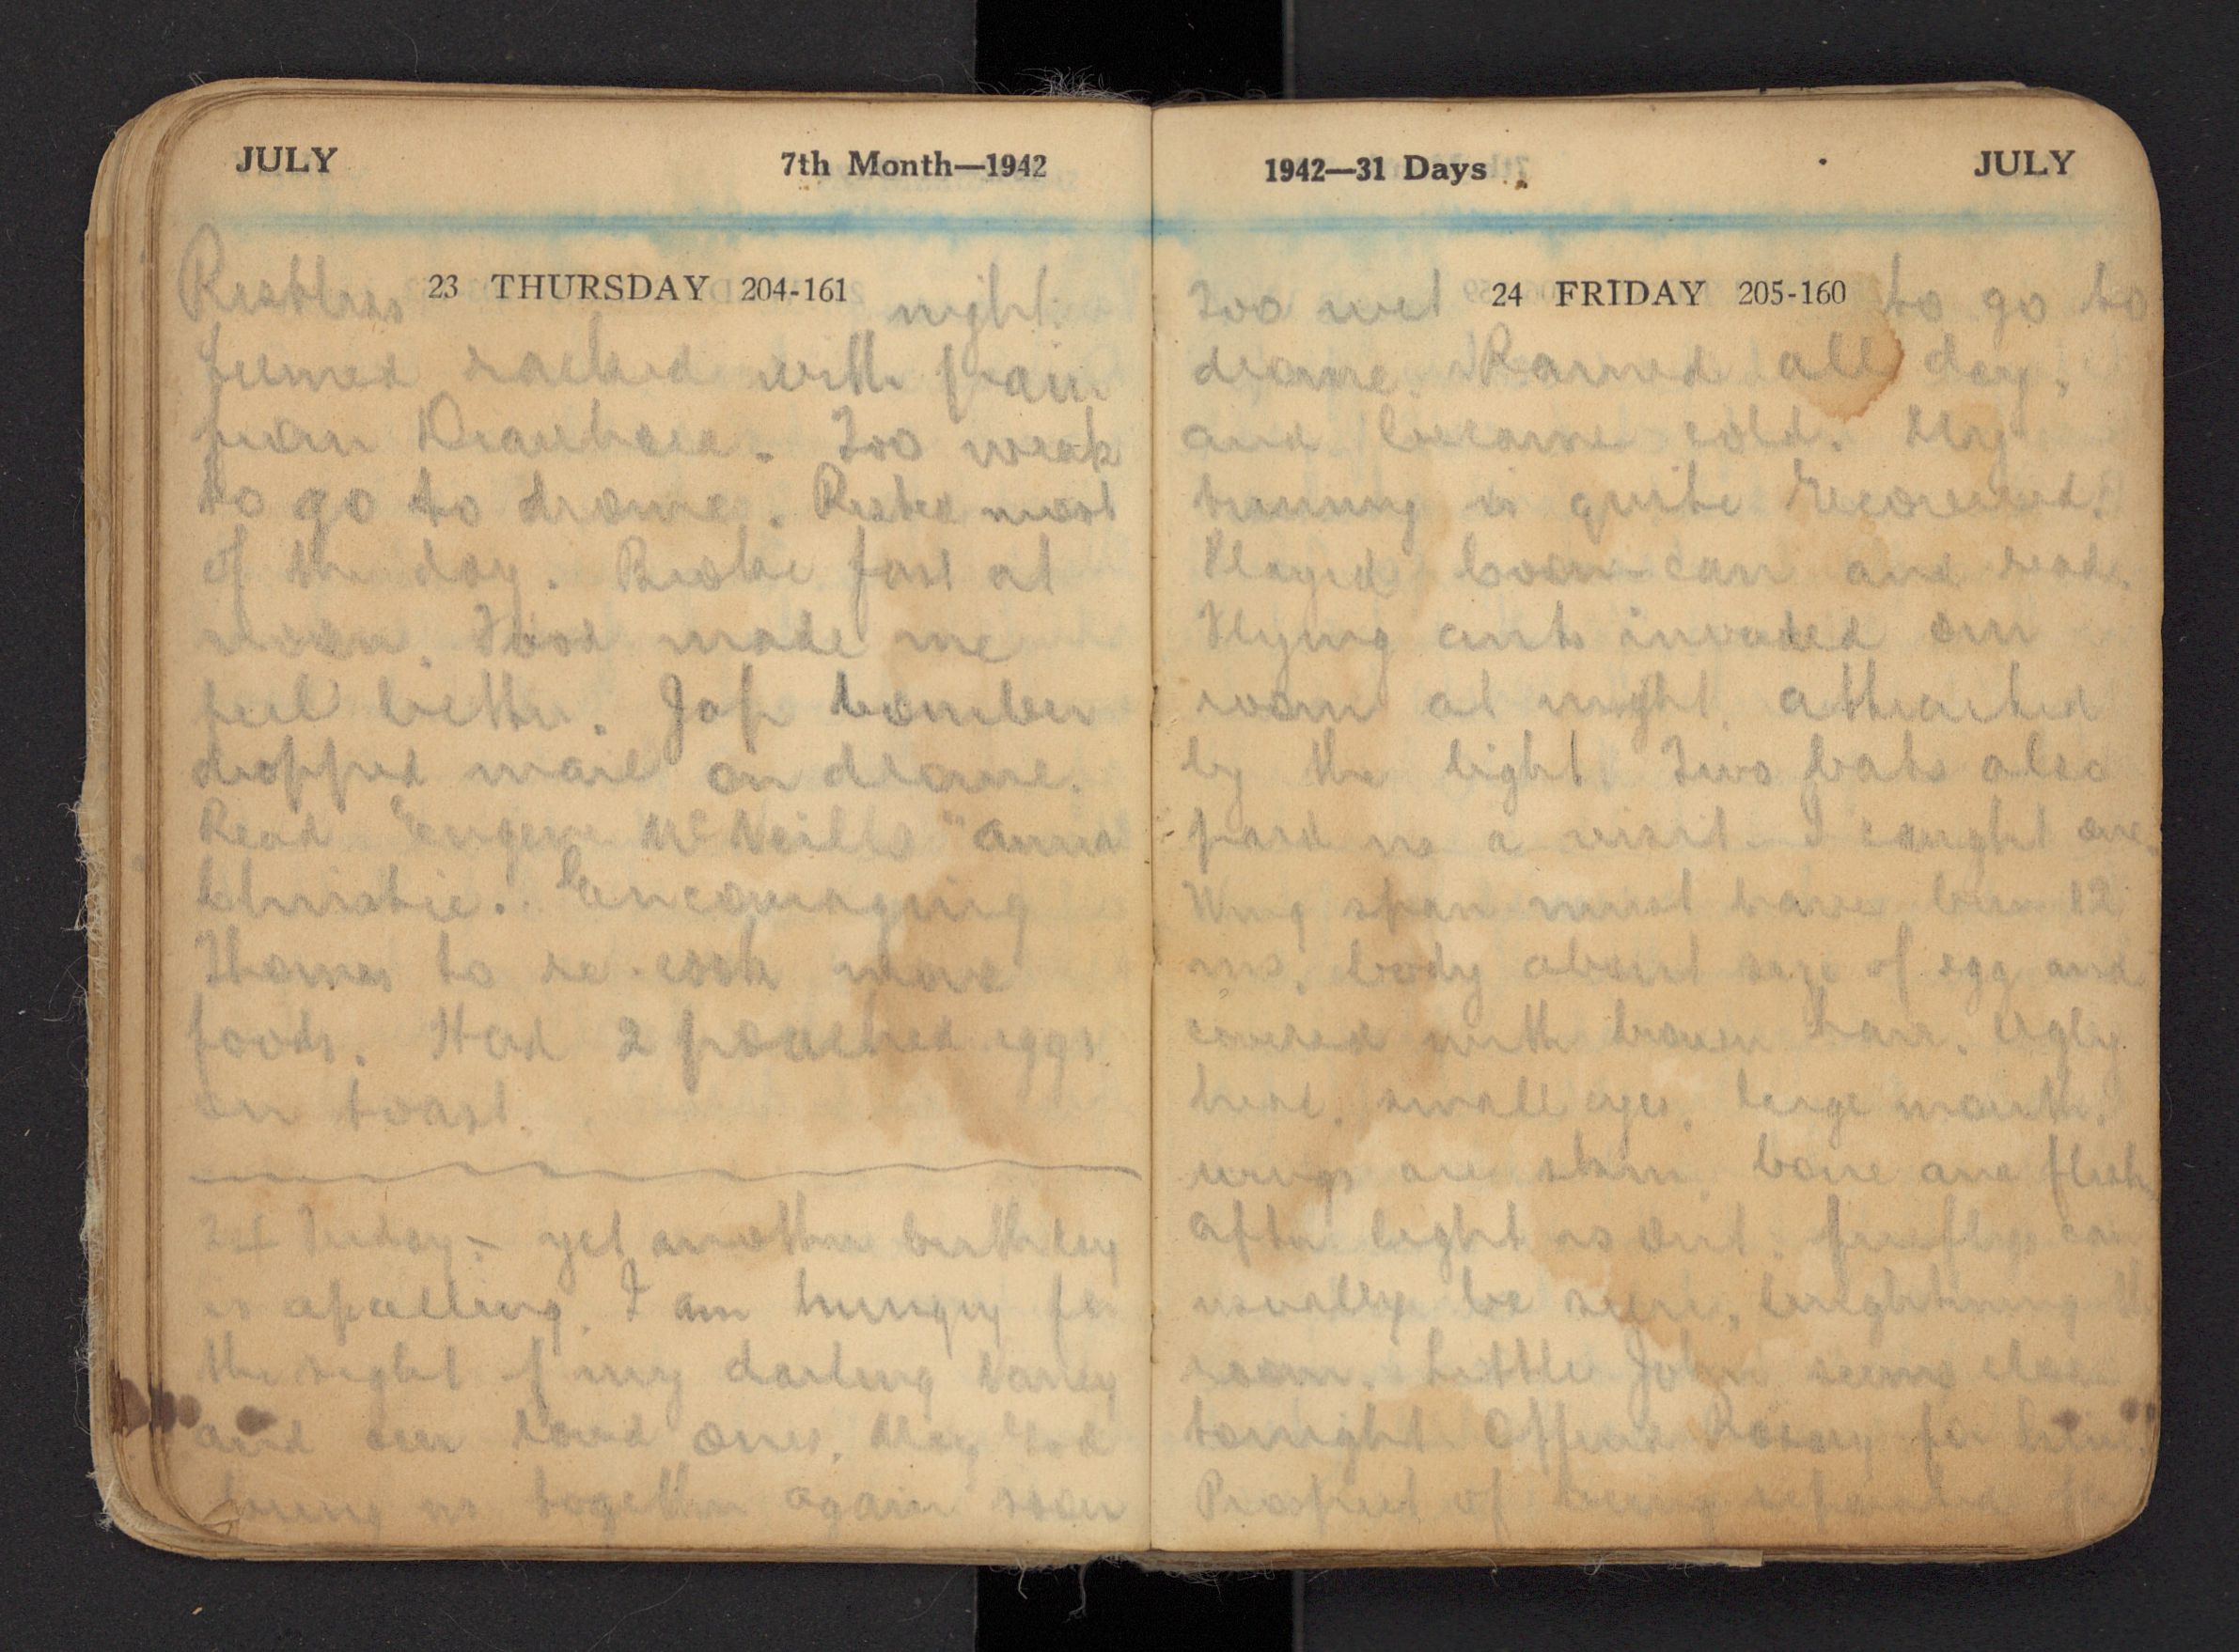 JULY 7th Month—1942
23 THURSDAY 204-161
Restless night.
Seemed racked with pain
from Diarrhoea. Too weak
to go to drome. Rested most
of the day. Broke fast at
noon. Food made me
feel better. Jap bomber
dropped mail on drome.
Read "Eugene McNeills" "Anna
Christie." Encouraging
Thomas to re-cook more
foods. Had 2 poached eggs
on toast.
24 Friday - yet another birthday
is apalling. I am hungry for
the sight of my darling
and our loved ones. May God
bring us together again soon
1942—31 Days JULY
24 FRIDAY 205-160
Too wet to go to
drome. Rained all day,
and became cold. My
tummy is quite recovered.
Played coon-can and read.
Flying ants invaded our
room at night, attracted
by the light. Two bats also
paid us a visit. I caught one.
Wing span must have been 12
ins, body about size of egg and
covered with brown hair. Ugly
head, small eyes, large mouth.
wings are skin, bone and flesh
After light is out, fireflys can
usually be seen, brightening the
room. Little John seems close
tonight. Offered Rosary for him.
Prospect of being separated for